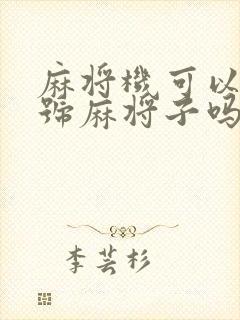 麻将機可以
號麻将子吗
李芸杉